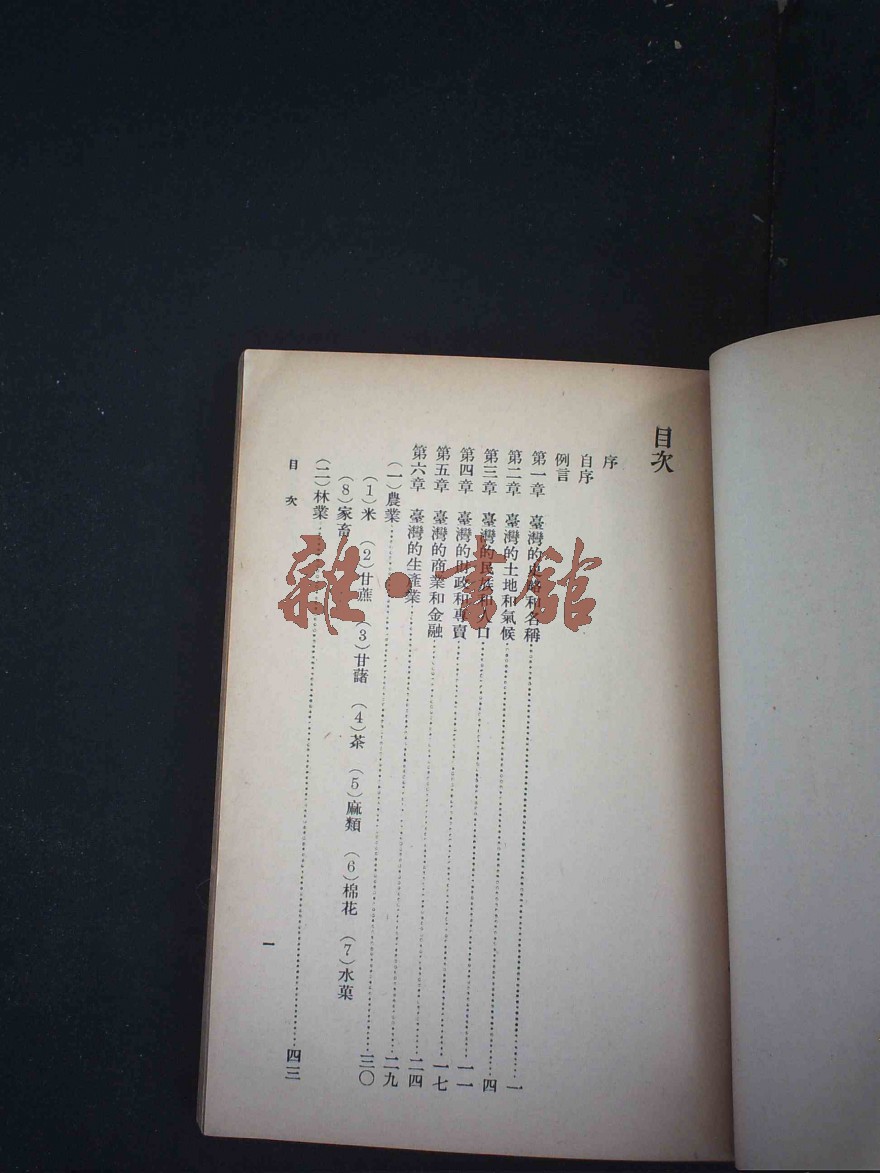 目次
序
自序
例言
第一章 臺灣的史略和名稱……一
第二章 臺灣的土地和氣候……四
第三章 臺灣的民族和人口……一一
第四章 臺灣的財政和專賣……一七
第五章 臺灣的商業和金融……二四
第六章 臺灣的生產業……二九
(一)農業……三〇
(1)米 (2)甘蔗 (3)甘藷 (4)茶 (5)麻類 (6)棉花 (7)水菓
(8)家畜
(二)林業……四三
目次
一
雜·書館